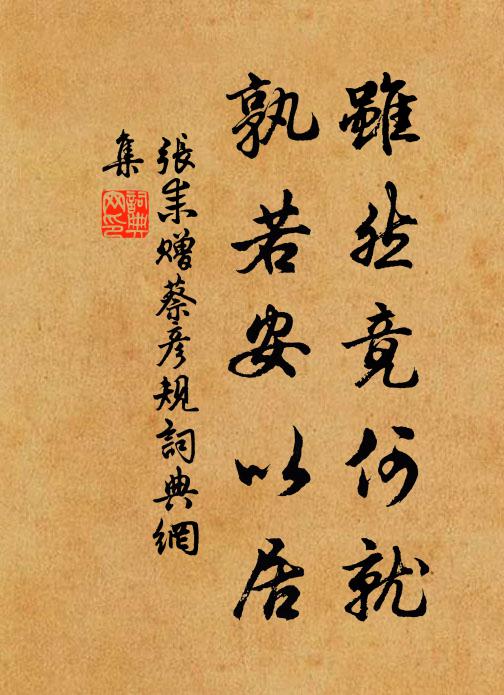 雖然竟何就
孰若安以居
張耒贈蔡彥規詞典網
集
詞典
网印